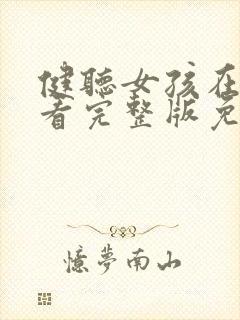 健聽女孩在
看完整版免
憶夢南山